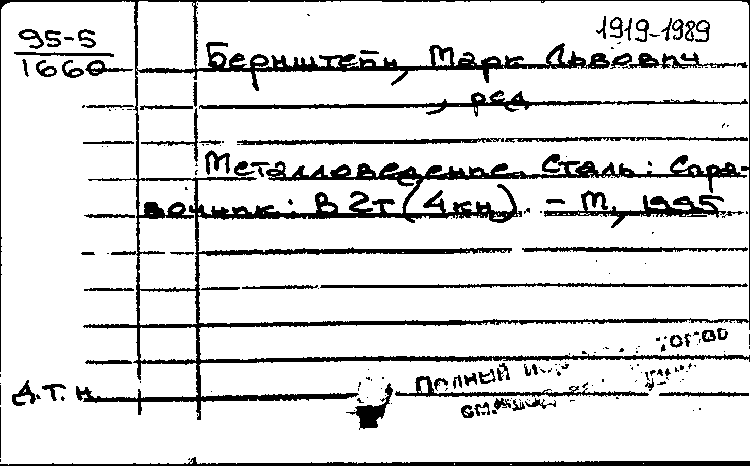 95-5
1660
1919-1989
Бернштейн, Марк Львович
, ред
Металловедение. Сталь: Спра-
вочник: В 2т (4кн). - М., 1995
Д.Т.Н.
Полный
см.